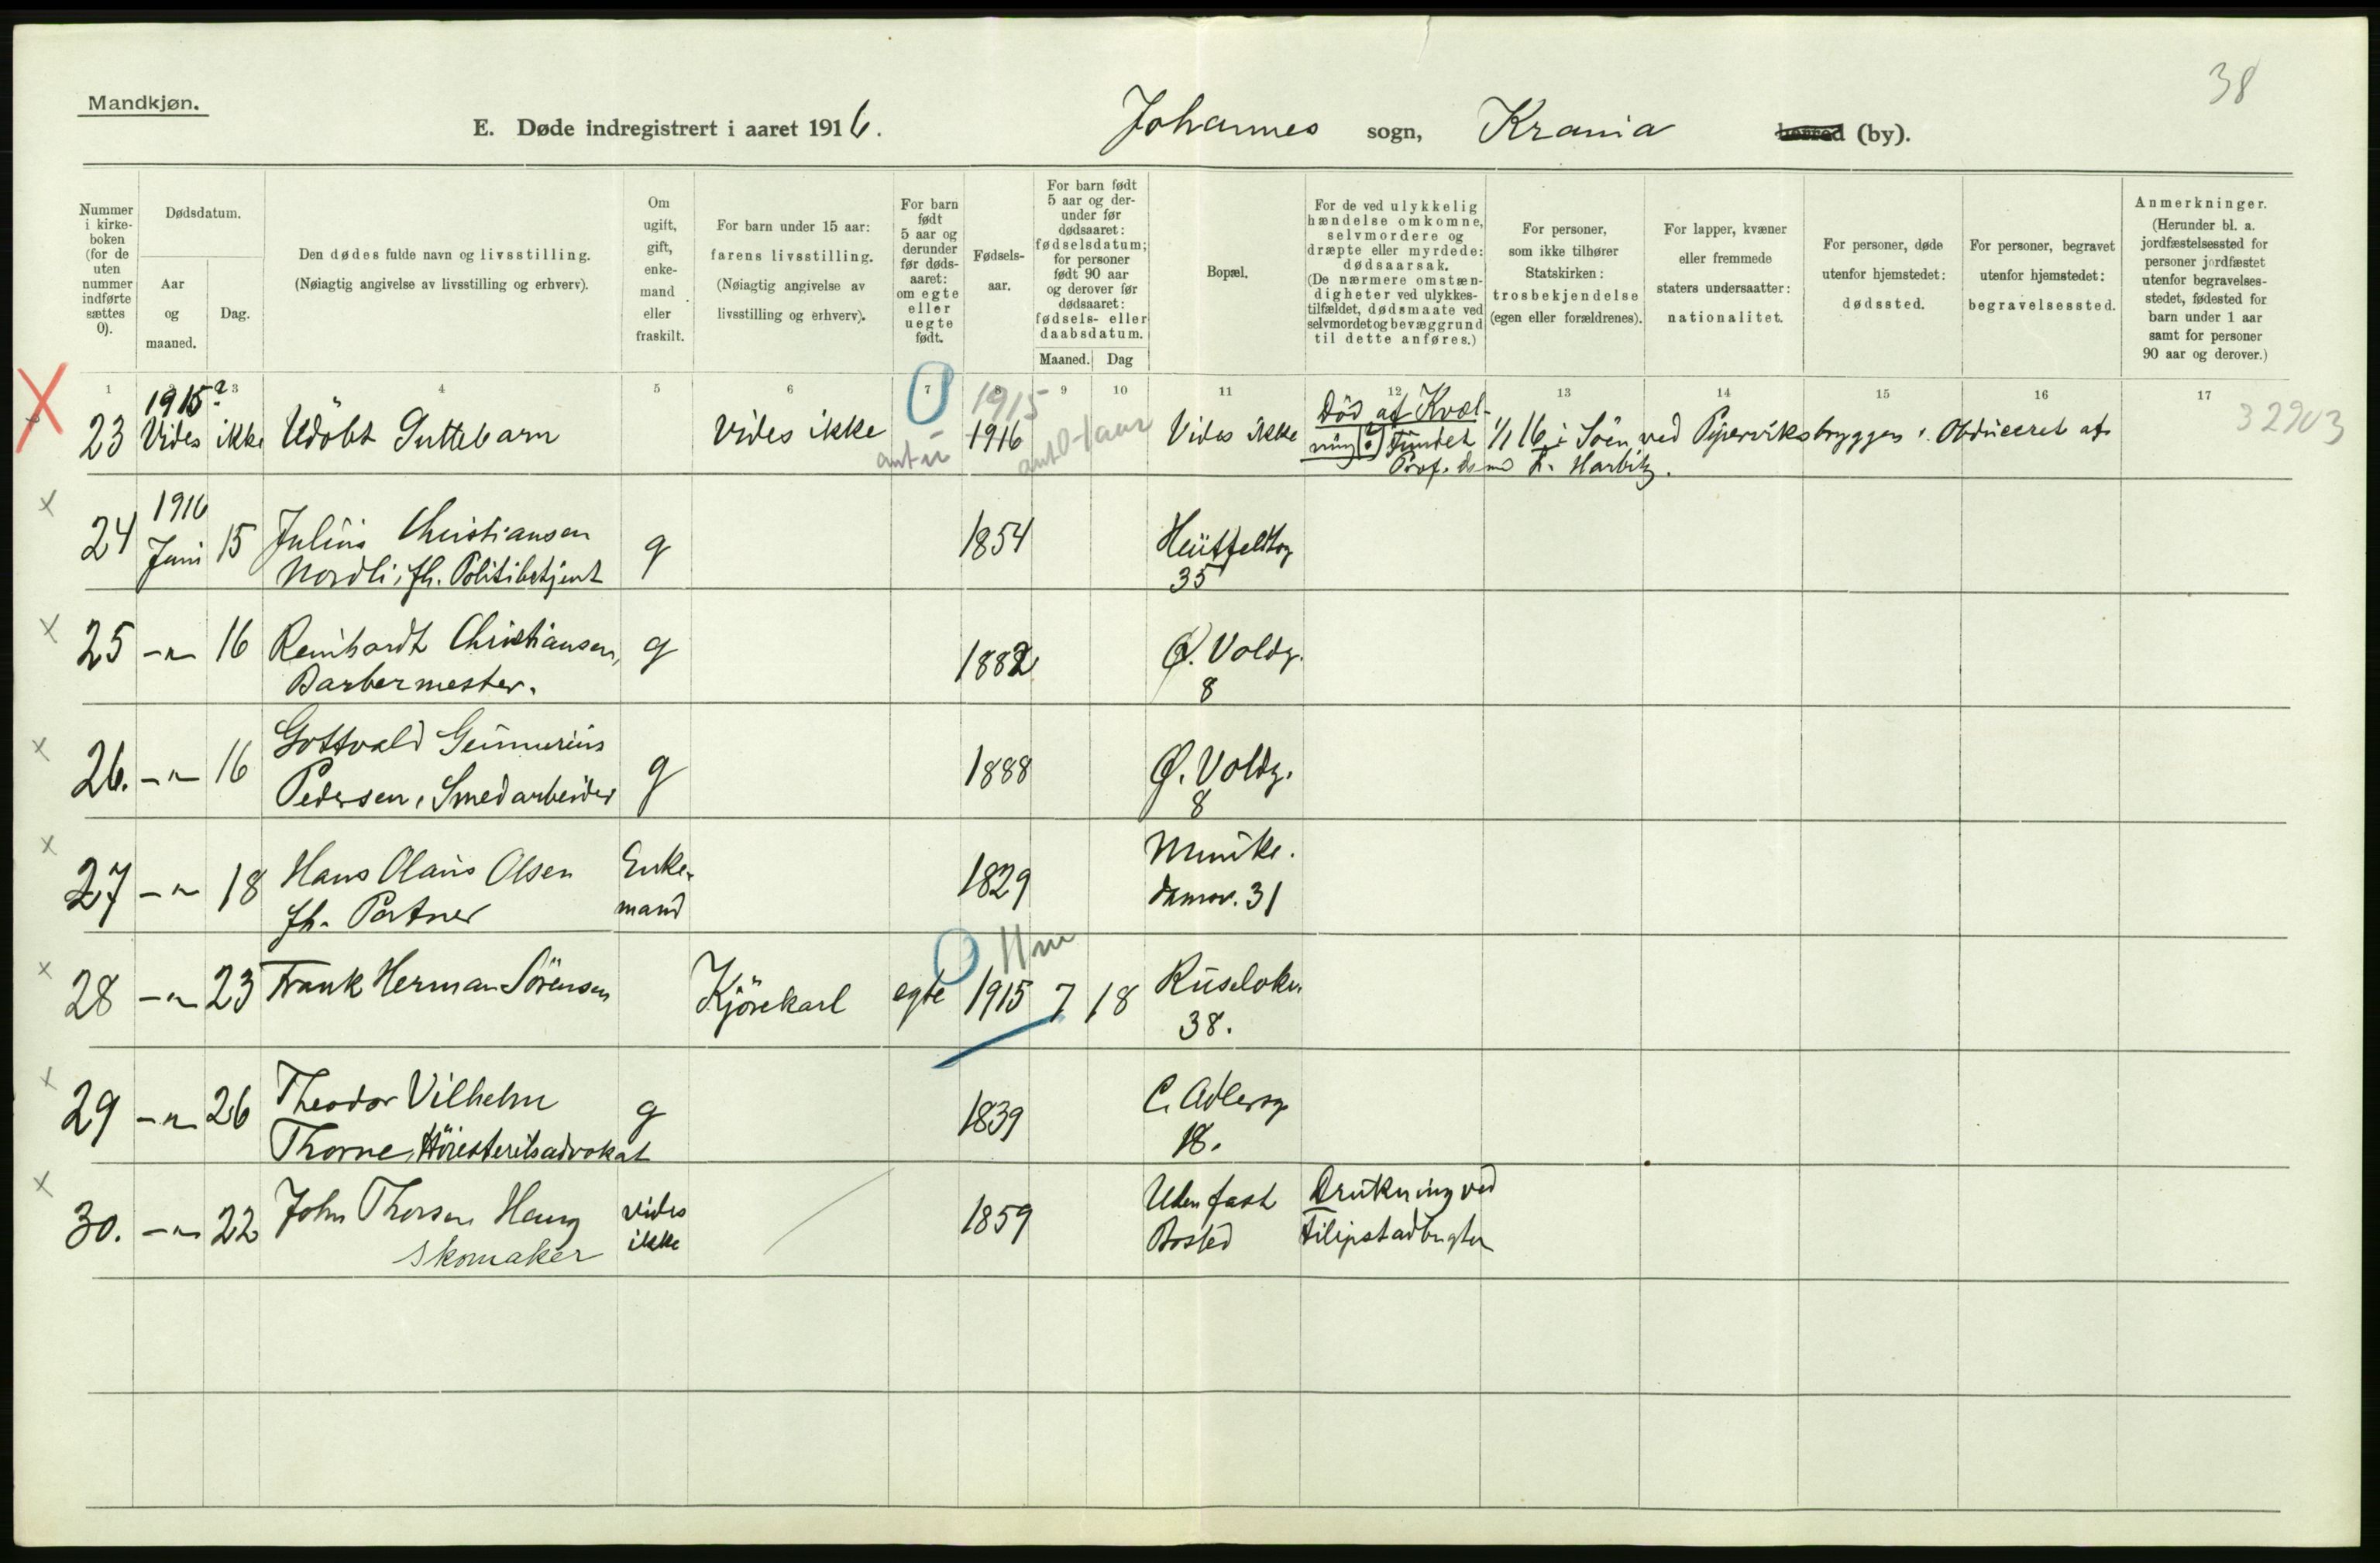 38
Mandkjøn.
E. Døde indregistrert i aaret 1916.
Johannes sogn, Krania herred (by).
Nummer i kirkeboken (for de uten nummer indførte sættes 0).
Dødsdatum.
Aar og maaned.
Dag.
Den dødes fulde navn og livsstilling.
(Nøiagtig angivelse av livsstilling og erhverv).
Om ugift, gift, enkemand eller fraskilt.
For barn under 15 aar: farens livsstilling.
(Nøiagtig angivelse av livsstilling og erhverv).
For barn født 5 aar og derunder før dødsaaret: om egte eller uegte født.
Fødselsaar.
For barn født 5 aar og derunder før dødsaaret: fødselsdatum; for personer født 90 aar og derover før dødsaaret: fødsels- eller daabsdatum.
Maaned. Dag
Bopæl.
For de ved ulykkelig hændelse omkomne, selvmordere og dræpte eller myrdede: dødsaarsak.
(De nærmere omstændigheter ved ulykkestilfældet, dødsmaate ved selvmordet og bevæggrund til dette anføres.)
For personer, som ikke tilhører Statskirken: trosbekjendelse (egen eller forældrenes).
For lapper, kvæner eller fremmede staters undersaatter: nationalitet.
For personer, døde utenfor hjemstedet: dødssted.
For personer, begravet utenfor hjemstedet: begravelsessted.
Anmerkninger.
(Herunder bl. a. jordfæstelsessted for personer jordfæstet utenfor begravelsesstedet, fødested for barn under 1 aar samt for personer 90 aar og derover.)
1 2 3 4 5 6 7 8 9 10 11 12 13 14 15 16 17
1915? 1915 Död af Kvæl-
23 Vides ikke Udöbt Guttebarn vides ikke ant u 1916 ant 0-1 aar Vides ikke ning(?) Fundet 1/1 16 i Söen ved Piperviksbryggen. Obduceret af 32903
Prof. Harbitz.
1916
24 Juni 15 Julius Christiansen g 1854 Huitfeldtsg
Nordli, fh. Politibetjent 35
25 -"- 16 Reinhardt Christiansen, g 1882 Ø. Voldg.
Barbermester. 8
26. -"- 16 Gottvald Gunnerius g 1888 Ø. Voldg.
Pedersen, Smedarbeider 8
27 -"- 18 Hans Olaus Olsen Enke- 1829 Munke.
fh. Portner mand damsv. 31
0 11 m
28 -"- 23 Frank Herman Sörensen Kjörekarl egte 1915 7 18 Ruselökv.
38.
29 -"- 26 Theodor Vilhelm g 1839 C. Adlersg
Thorne, Höiesteretsadvokat 18.
30. -"- 22 John Thorsen Haug vides ikke 1859 Uden fast Drukning ved
Skomaker Bosted Filipstadbugten